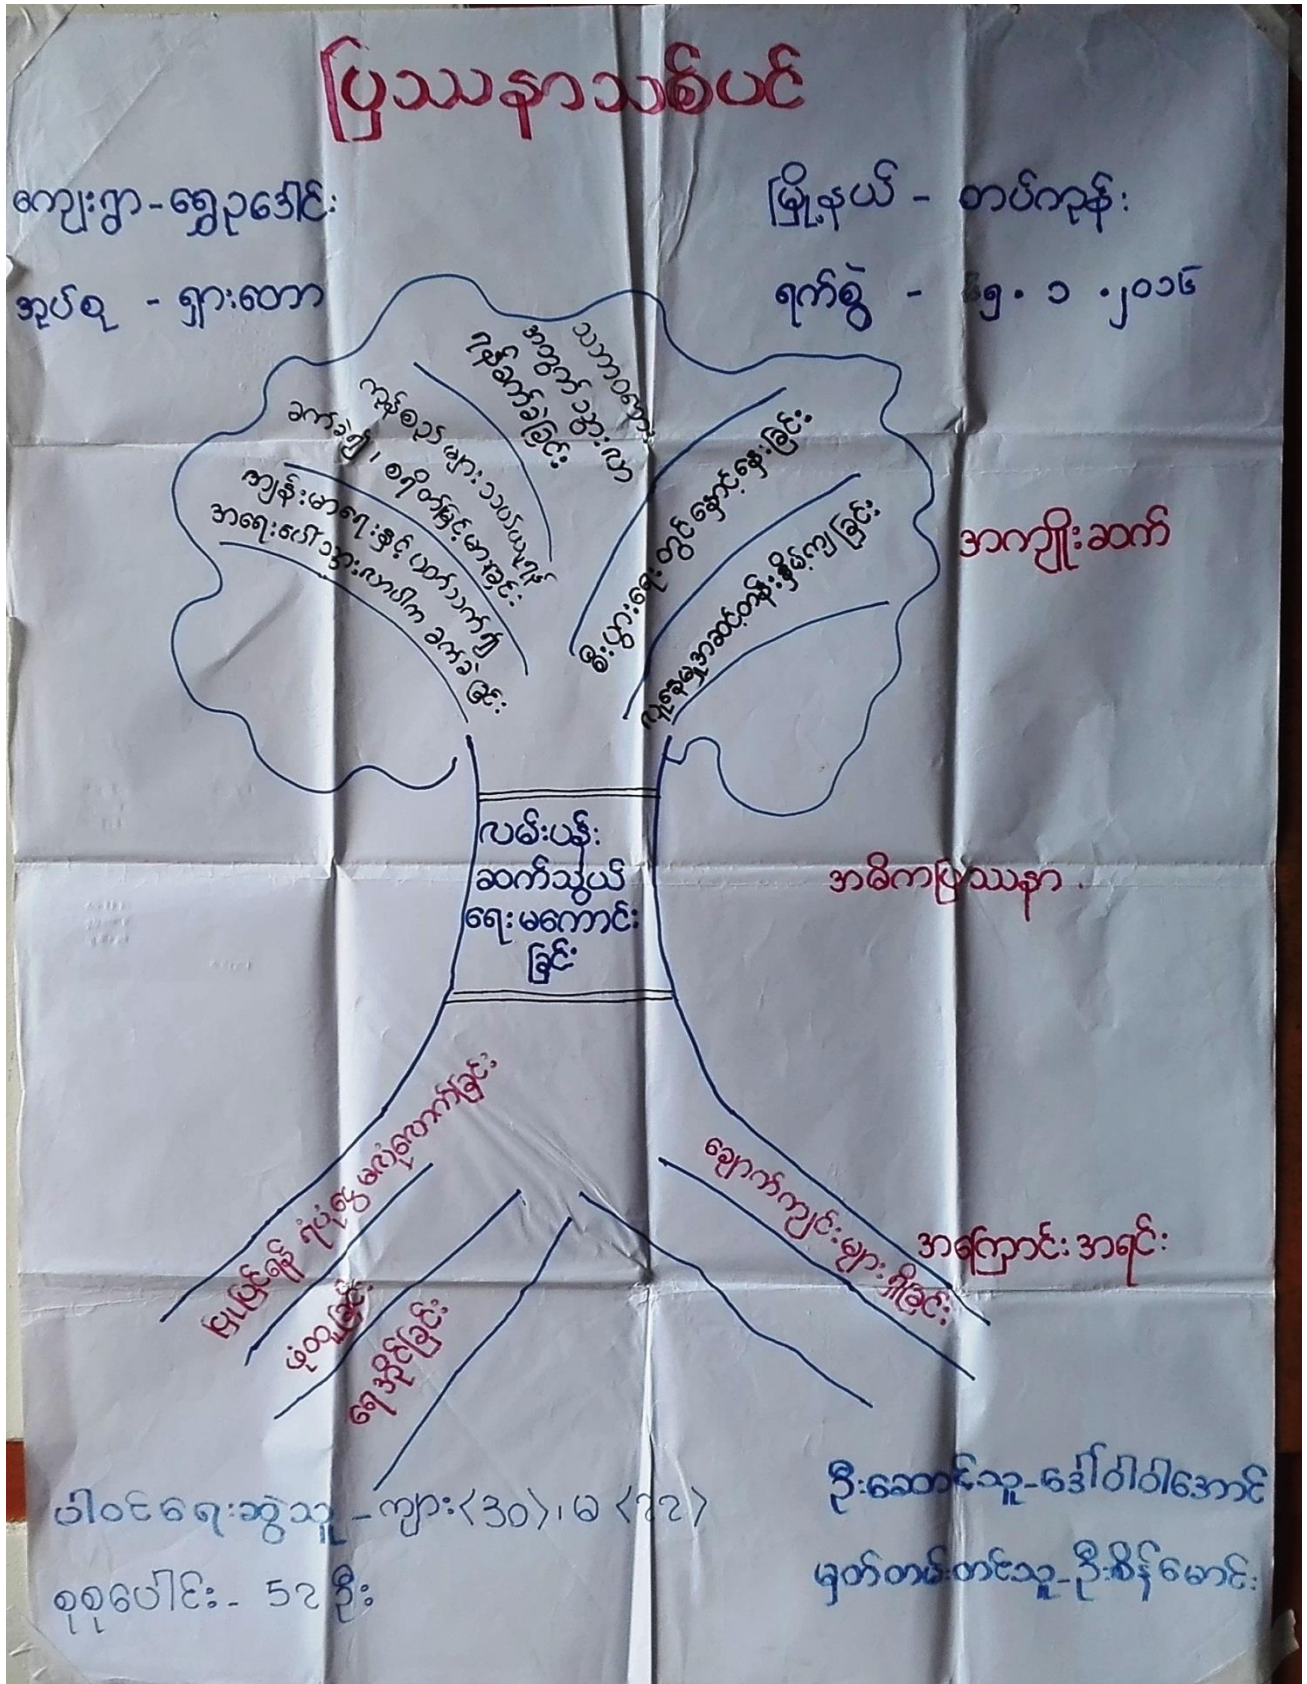 ပြဿနာသစ်ပင်
ကျေးရွာ-ရွှေဥဒေါင်း
မြို့နယ် - တပ်ကုန်း
အုပ်စု - ရှားတော
ရက်စွဲ - ၅.၁.၂၀၁၆
သဘာဝဘေး
အတွက် သွားလာ
ရန်ခက်ခဲခြင်း
ကုန်စည်များ သယ်ယူရန်
ခက်ခဲ၍၊ စရိတ်မြင့်မားခြင်း
ကျန်းမာရေးနှင့် ပတ်သက်၍
အရေးပေါ်သွားလာပါက ခက်ခဲခြင်း
စီးပွားရေးတွင်နှောင့်နှေးခြင်း
လူနေမှုအဆင့်တန်းနှိမ့်ကျခြင်း
အကျိုးဆက်
လမ်းပန်း
ဆက်သွယ်
ရေးမကောင်း
ခြင်း
အဓိကပြဿနာ
ပြုပြင်ရန် ရံပုံငွေ မလုံလောက်ခြင်း
ဖုံထူခြင်း
ရေတိုက်ခြင်း
ချောက်ကျင်းများရှိခြင်း
အကြောင်းအရင်း
ပါဝင်ရေးဆွဲသူ - ကျား<30>၊ မ<22>
စုစုပေါင်း - 52 ဦး
ဦးဆောင်သူ-ဒေါ်ဝါဝါအောင်
မှတ်တမ်းတင်သူ-ဦးစိန်မောင်